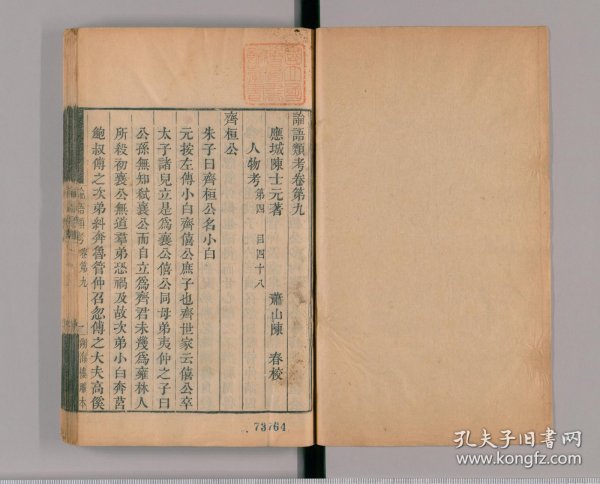 論語類考卷第九
應城陳士元著 蕭山陳 春校
人物考第四 目四十八
齊桓公
朱子曰齊桓公名小白
元按左傳小白齊僖公庶子也齊世家云僖公卒
太子諸兒立是爲襄公僖公同母弟夷仲之子曰
公孫無知弑襄公而自立爲齊君未幾爲雍林人
所殺初襄公無道羣弟恐禍及故次弟小白奔莒
鮑叔傅之次弟糾奔魯管仲召忽傅之大夫高傒
論語類考卷第九 一 湖海樓雕本
73764
孔夫子旧书网
www.kongfz.com